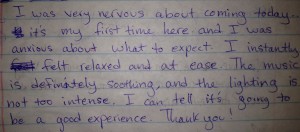 I was very nervous about coming today
it's my first time here and I was
anxious about what to expect. I instantly
felt relaxed and at ease. The music
is definately soothing, and the lighting is
not too intense. I can tell it's going to
be a good experience. Thank you!